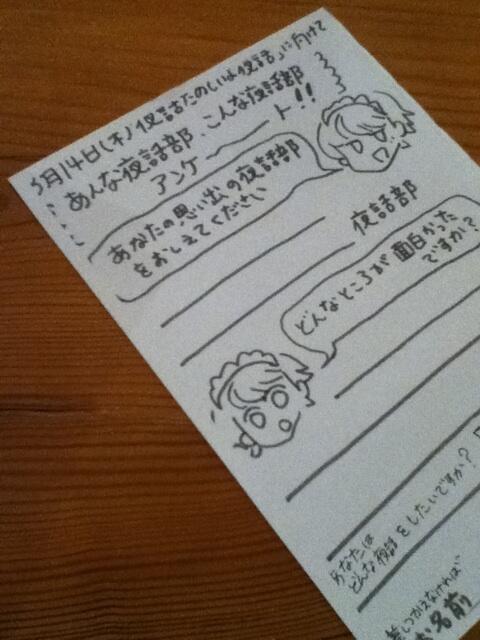 5月14日(木)「夜話たのしいは夜話」に向けて
あんな夜話部、こんな夜話部
アンケート!!
あなたの思い出の夜話部
をおしえてください
夜話部
どんなところが面白かった
ですか?
あなたは
どんな夜話をしたいですか?「
つかえなければ
名前